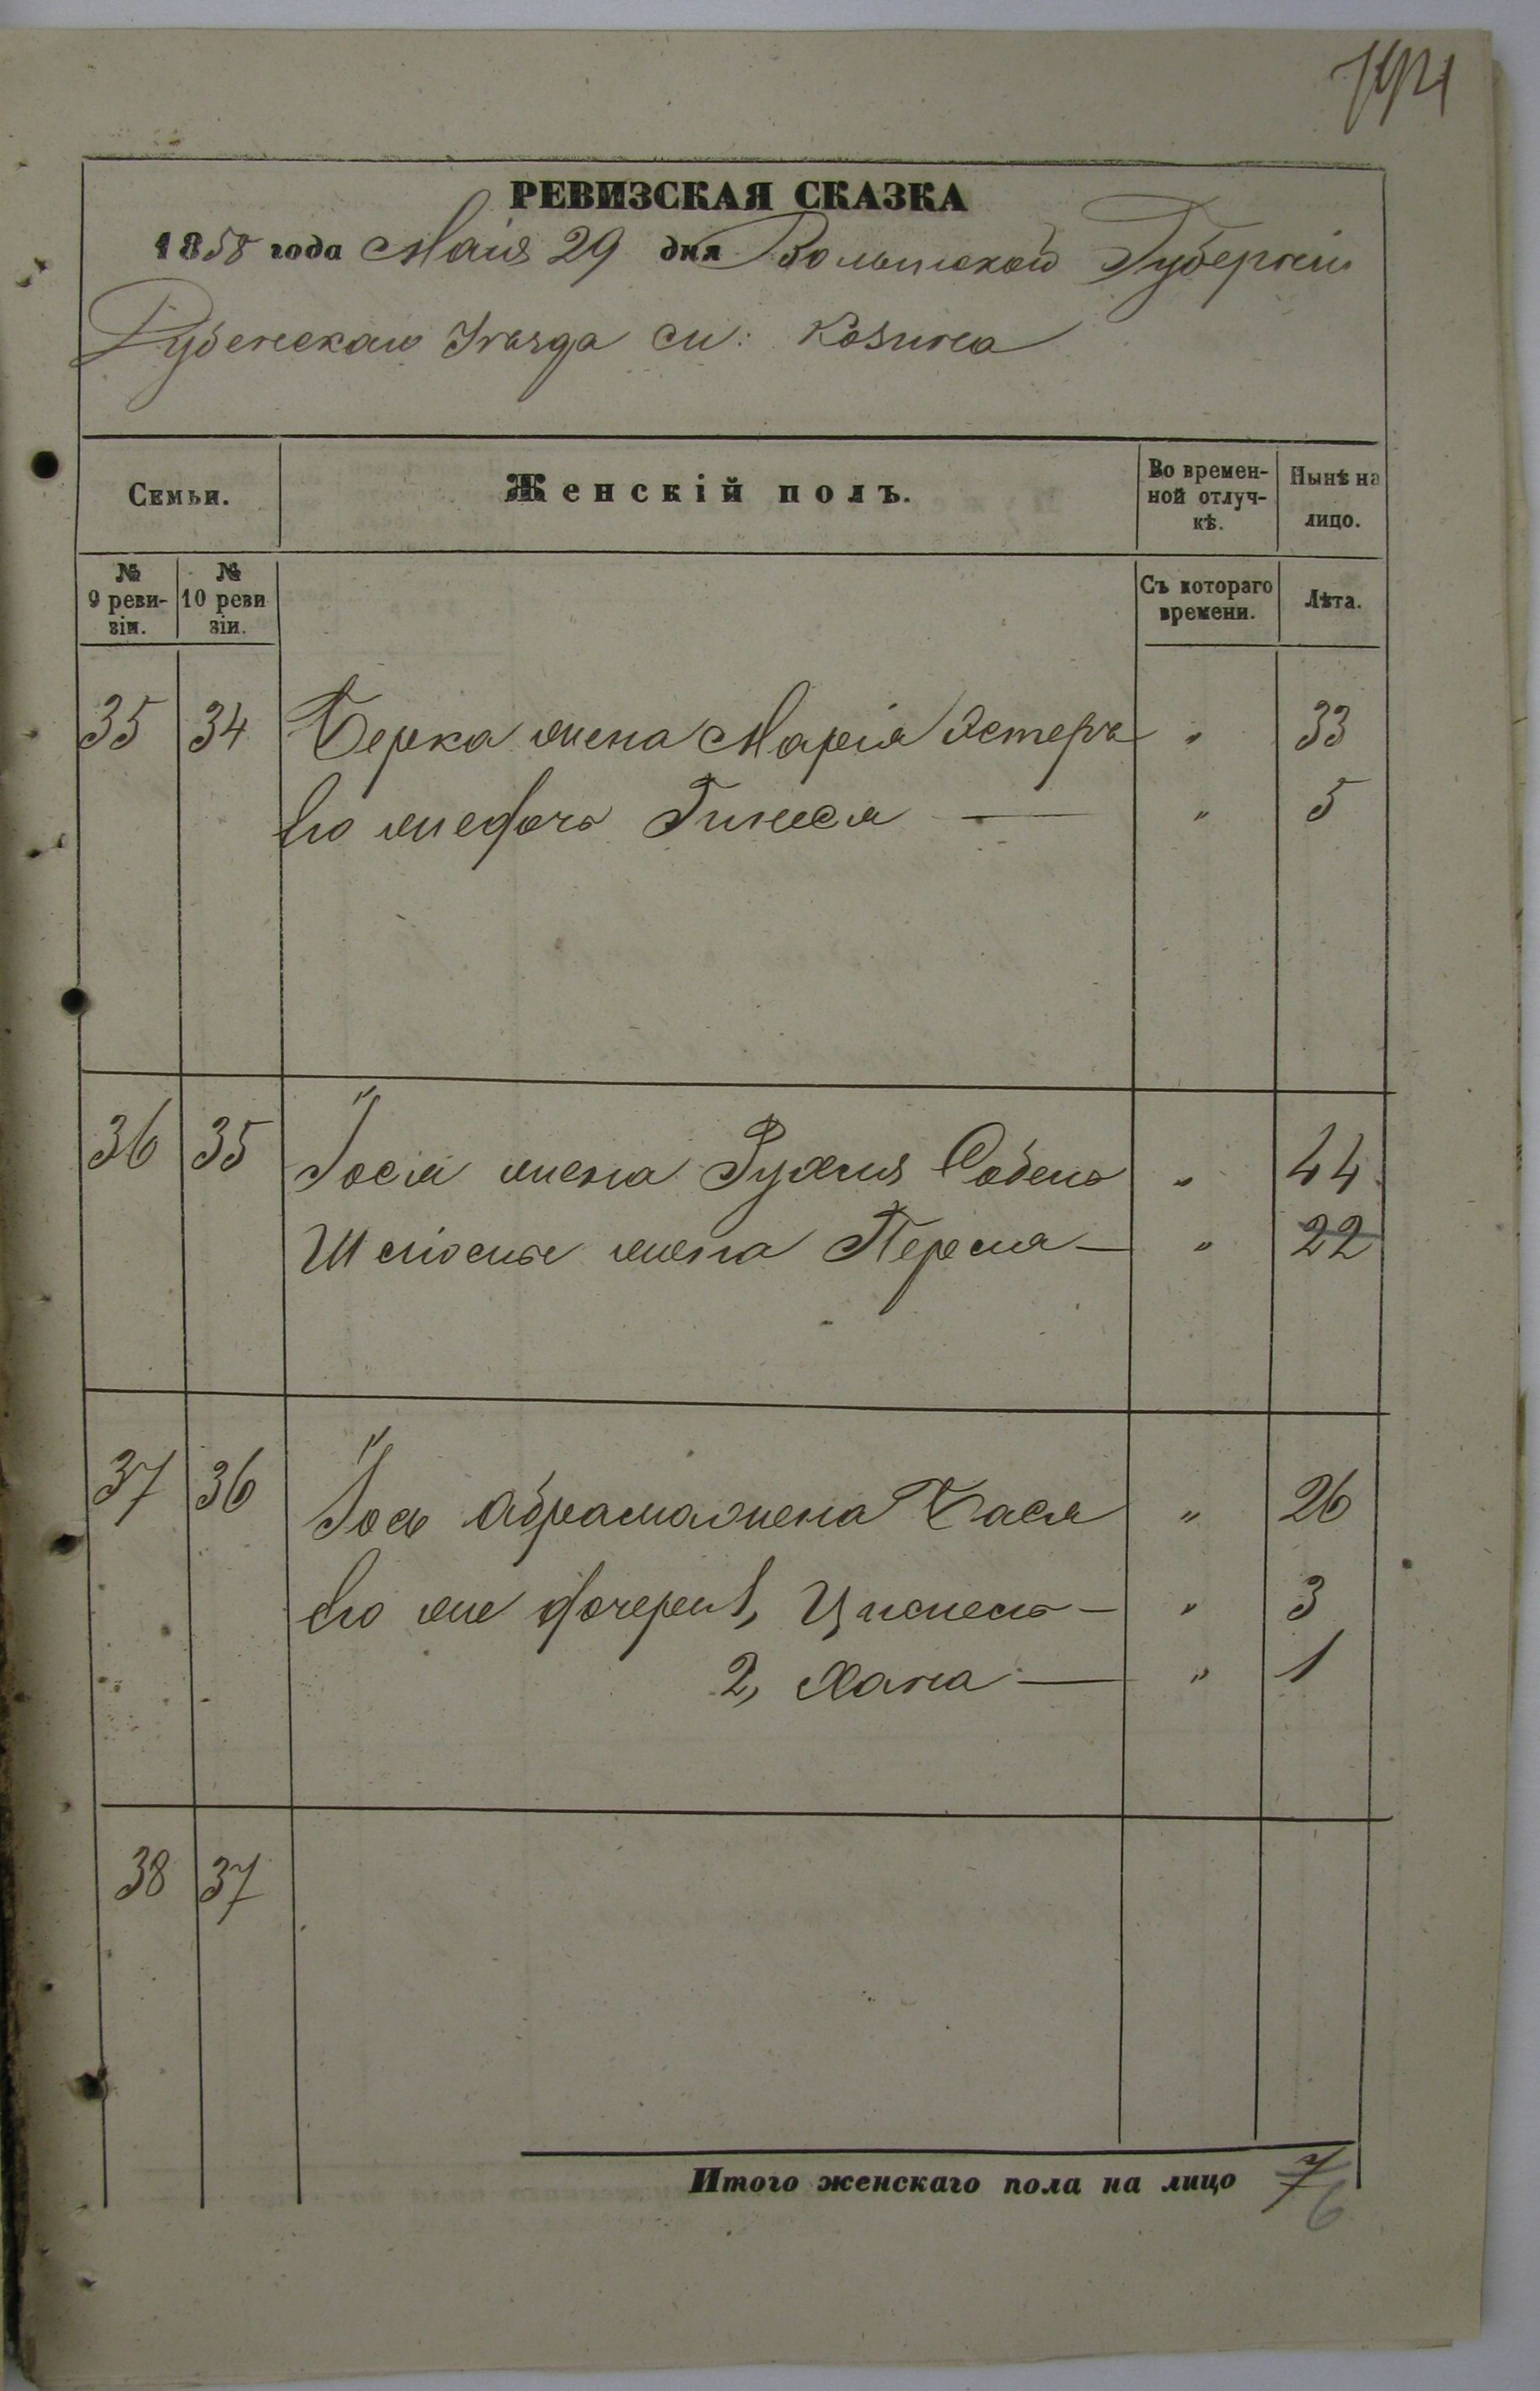 РЕВИЗСКАЯ СКАЗКА
1858 года Маія 29 дня Волынской Губерніи
Дубенскаго Уѣзда м: Козина
Семьи.
Женскій полъ.
Во времен-
ной отлуч-
кѣ.
Нынѣ на
лицо.
№
9 реви-
зіи.
№
10 реви
зіи.
Съ котораго
времени.
Лѣта.
35 34 Берка жена Марія Эстеръ " 33
Его же дочь Гинеся — " 5
36 35 Іося жена Рухля " 44
жена Перла — " 22
37 36 Іось Абрама жена Бася " 26
Его же дочери 1, — " 3
2, Хана — " 1
38 37
Итого женскаго пола на лицо 7
6